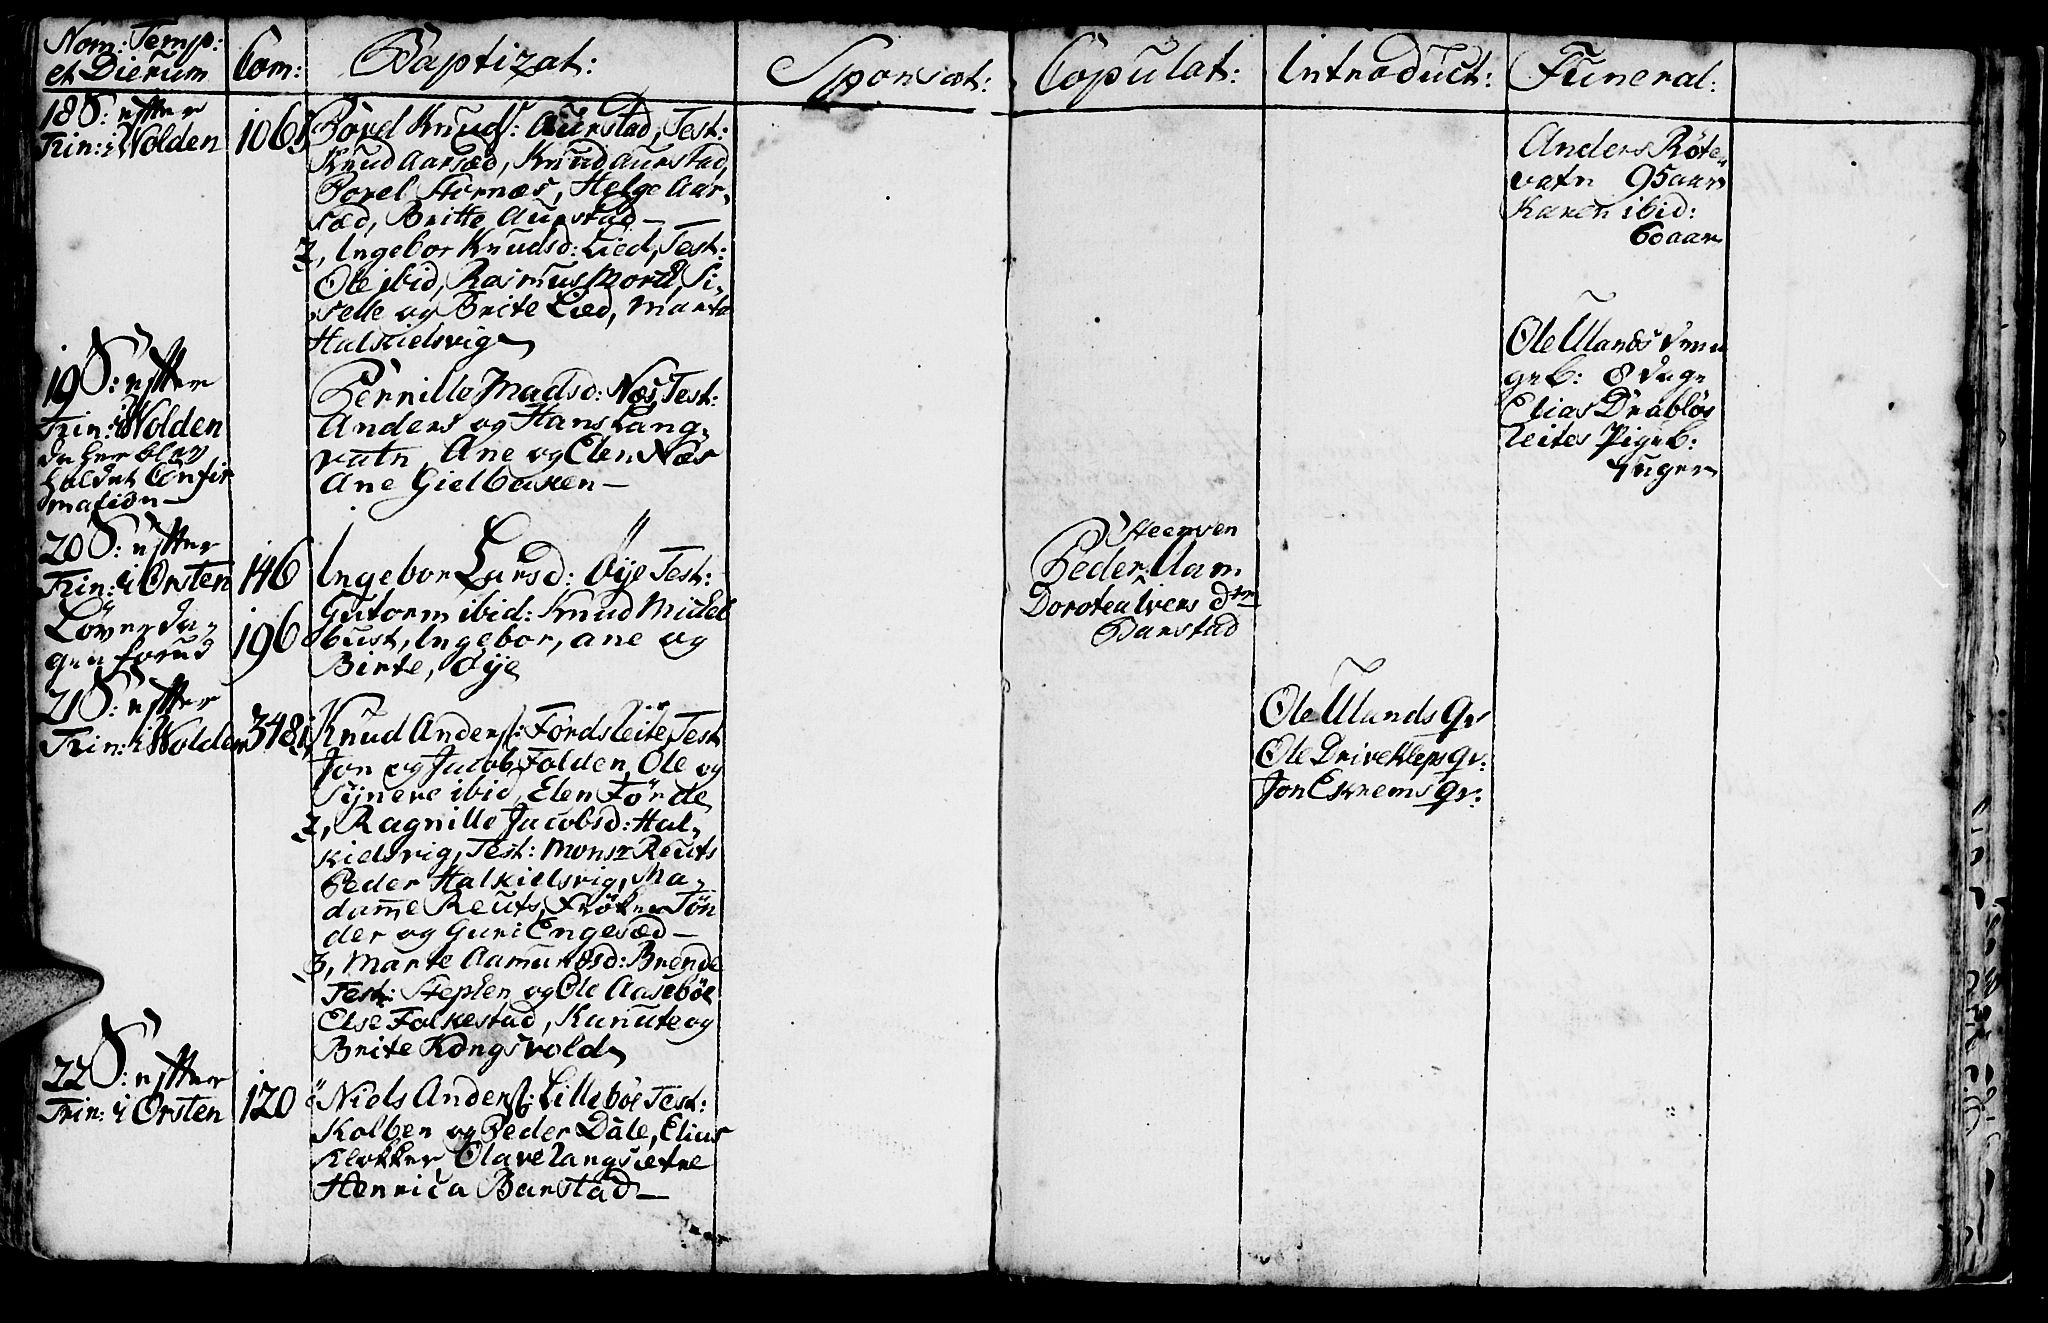 Nom: Temp:
et Dierum
Com:
Baptizat:
Sponsat:
Copulat:
Introduct:
Funeral:
18 S: effter
Trin: i Wolden
106
Borel Knuds: Aurstad, Test:
Knud Aarsæd, Knud Aurstad,
Borel Stornæs, Helge Aar-
sæd, Britte Aurstad —
2, Ingebor Knudsd: Lied, Test:
Ole ibid, Rasmus Mork, Si-
selle og Brite Lied, Marte
Halkielsvig
Anders Röte-
vatn 95 aar
Karen ibid:
60 aar
19 S: effter
Trin: i Wolden
da her blev
holdet Confir
mation —
Pernille Madsd: Næs, Test:
Anders og Hans Lang-
vatn, Ane og Elen Næs
Ane Gielbaken —
Ole Ulands Dreng
geb: 8 dage
Elias Drabløs
leites Pigeb:
4 uger
20 S: effter
Trin: i Orsten
146
Ingebor Larsd: Öye Test:
Gutorm ibid: Knud Midel
bust, Ingebor, Ane og
Birte, Öye
Löverda-
gen forud
196
Steensen
Peder Aam
Dorotea Ivers dtr
Barstad
21 S: effter
Trin: i Wolden
348
1, Knud Anders: Fördsleite, Test
Jon og Jacob Folden, Ole og
Synere ibid, Elen Förde
2, Ragnille Jacobsd: Hal-
kielsvig, Test: Monsr Reuts
Peder Halkielsvig, Ma-
dame Reuts, Fröken Tön
der og Guri Engesæd —
3, Marte Aamundsd: Brende
Test: Stephen og Ole Aasebøe
Else Folkestad, Kanute og
Brite Kongsvold
Ole Ulands Qv:
Ole Drivekleps qv:
Jon Eskrems qv:
22 S: effter
Trin: i Orsten
120
Niels Anders: Lillebøe Test:
Kolben og Peder Dale, Elias
Klokker, Olave Langsætre
Henrica Barstad —